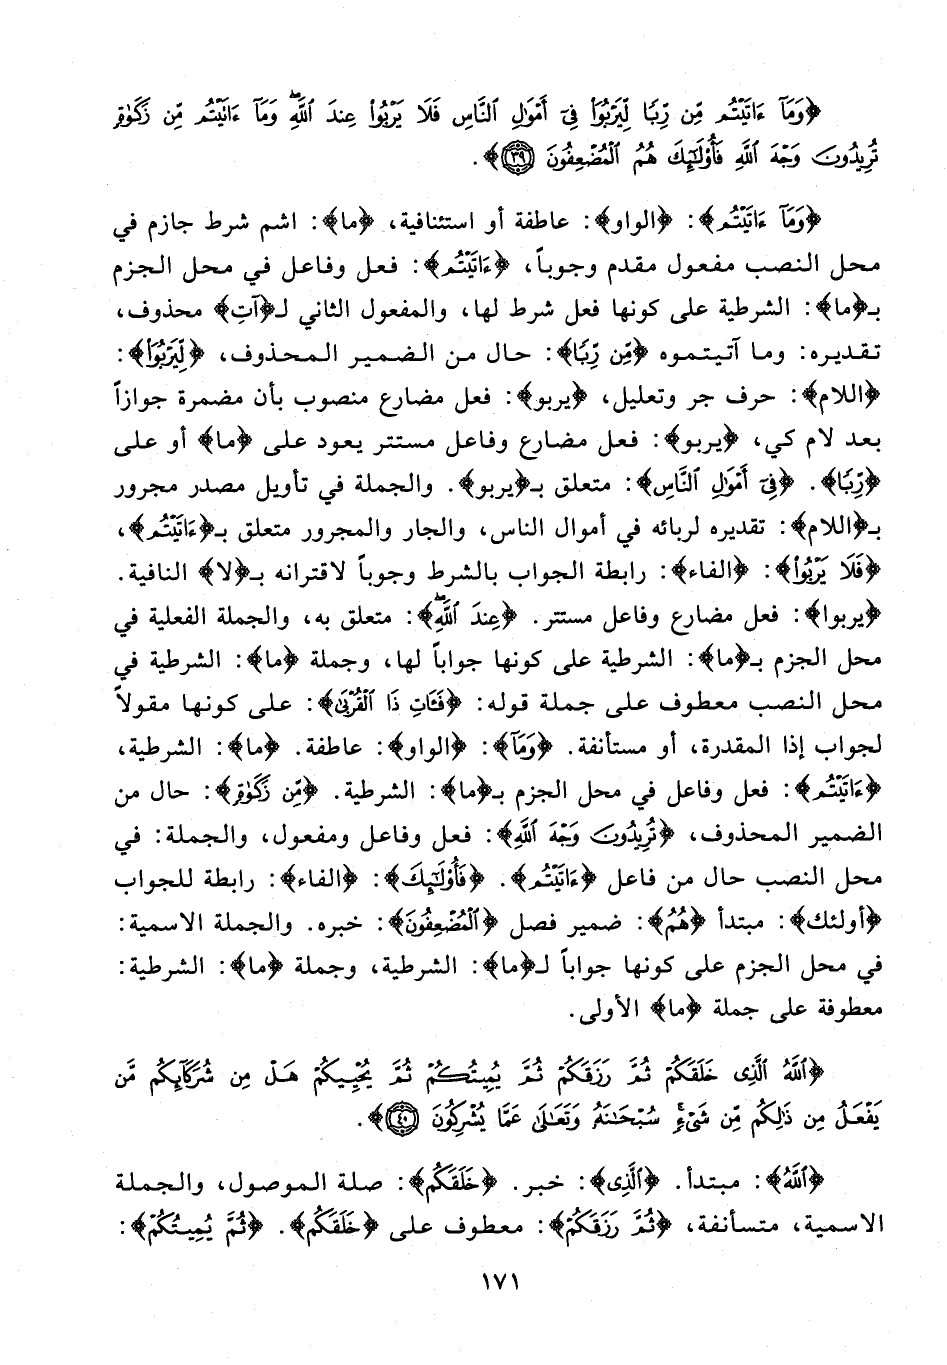 ﴿وَمَآ ءَاتَيْتُم مِّن رِّبًا لِّيَرْبُوَا۟ فِىٓ أَمْوَٰلِ ٱلنَّاسِ فَلَا يَرْبُوا۟ عِندَ ٱللَّهِ ۖ وَمَآ ءَاتَيْتُم مِّن زَكَوٰةٍ
تُرِيدُونَ وَجْهَ ٱللَّهِ فَأُو۟لَٰٓئِكَ هُمُ ٱلْمُضْعِفُونَ ٣٩﴾.
﴿وَمَآ ءَاتَيْتُم﴾: ﴿الواو﴾: عاطفة أو استئنافية، ﴿ما﴾: اشم شرط جازم في
محل النصب مفعول مقدم وجوباً، ﴿ءَاتَيْتُم﴾: فعل وفاعل في محل الجزم
بـ﴿ما﴾: الشرطية على كونها فعل شرط لها، والمفعول الثاني لـ﴿آتٍ﴾ محذوف،
تقديره: وما آتيتموه ﴿مِّن رِّبًا﴾: حال من الضمير المحذوف، ﴿لِّيَرْبُوَا۟﴾:
﴿اللام﴾: حرف جر وتعليل، ﴿يربو﴾: فعل مضارع منصوب بأن مضمرة جوازاً
بعد لام كي، ﴿يربو﴾: فعل مضارع وفاعل مستتر يعود على ﴿ما﴾ أو على
﴿رِّبًا﴾. ﴿فِىٓ أَمْوَٰلِ ٱلنَّاسِ﴾: متعلق بـ﴿يربو﴾. والجملة في تأويل مصدر مجرور
بـ﴿اللام﴾: تقديره لربائه في أموال الناس، والجار والمجرور متعلق بـ﴿ءَاتَيْتُم﴾،
﴿فَلَا يَرْبُوا۟﴾: ﴿الفاء﴾: رابطة الجواب بالشرط وجوباً لاقترانه بـ﴿لا﴾ النافية.
﴿يربوا﴾: فعل مضارع وفاعل مستتر. ﴿عِندَ ٱللَّهِ ۖ﴾: متعلق به، والجملة الفعلية في
محل الجزم بـ﴿ما﴾: الشرطية على كونها جواباً لها، وجملة ﴿ما﴾: الشرطية في
محل النصب معطوف على جملة قوله: ﴿فَـَٔاتِ ذَا ٱلْقُرْبَىٰ﴾: على كونها مقولاً
لجواب إذا المقدرة، أو مستأنفة. ﴿وَمَآ﴾: ﴿الواو﴾: عاطفة. ﴿ما﴾: الشرطية،
﴿ءَاتَيْتُم﴾: فعل وفاعل في محل الجزم بـ﴿ما﴾: الشرطية. ﴿مِّن زَكَوٰةٍ﴾: حال من
الضمير المحذوف، ﴿تُرِيدُونَ وَجْهَ ٱللَّهِ﴾: فعل وفاعل ومفعول، والجملة: في
محل النصب حال من فاعل ﴿ءَاتَيْتُم﴾. ﴿فَأُو۟لَٰٓئِكَ﴾: ﴿الفاء﴾: رابطة للجواب
﴿أولئك﴾: مبتدأ ﴿هُمُ﴾: ضمير فصل ﴿ٱلْمُضْعِفُونَ﴾: خبره. والجملة الاسمية:
في محل الجزم على كونها جواباً لـ﴿ما﴾: الشرطية، وجملة ﴿ما﴾: الشرطية:
معطوفة على جملة ﴿ما﴾ الأولى.
﴿ٱللَّهُ ٱلَّذِى خَلَقَكُمْ ثُمَّ رَزَقَكُمْ ثُمَّ يُمِيتُكُمْ ثُمَّ يُحْيِيكُمْ هَلْ مِن شُرَكَآئِكُم مَّن
يَفْعَلُ مِن ذَٰلِكُم مِّن شَىْءٍ ۚ سُبْحَٰنَهُۥ وَتَعَٰلَىٰ عَمَّا يُشْرِكُونَ ٤٠﴾.
﴿ٱللَّهُ﴾: مبتدأ. ﴿ٱلَّذِى﴾: خبر. ﴿خَلَقَكُمْ﴾: صلة الموصول، والجملة
الاسمية، متسأنفة، ﴿ثُمَّ رَزَقَكُمْ﴾: معطوف على ﴿خَلَقَكُمْ﴾. ﴿ثُمَّ يُمِيتُكُمْ﴾:
١٧١